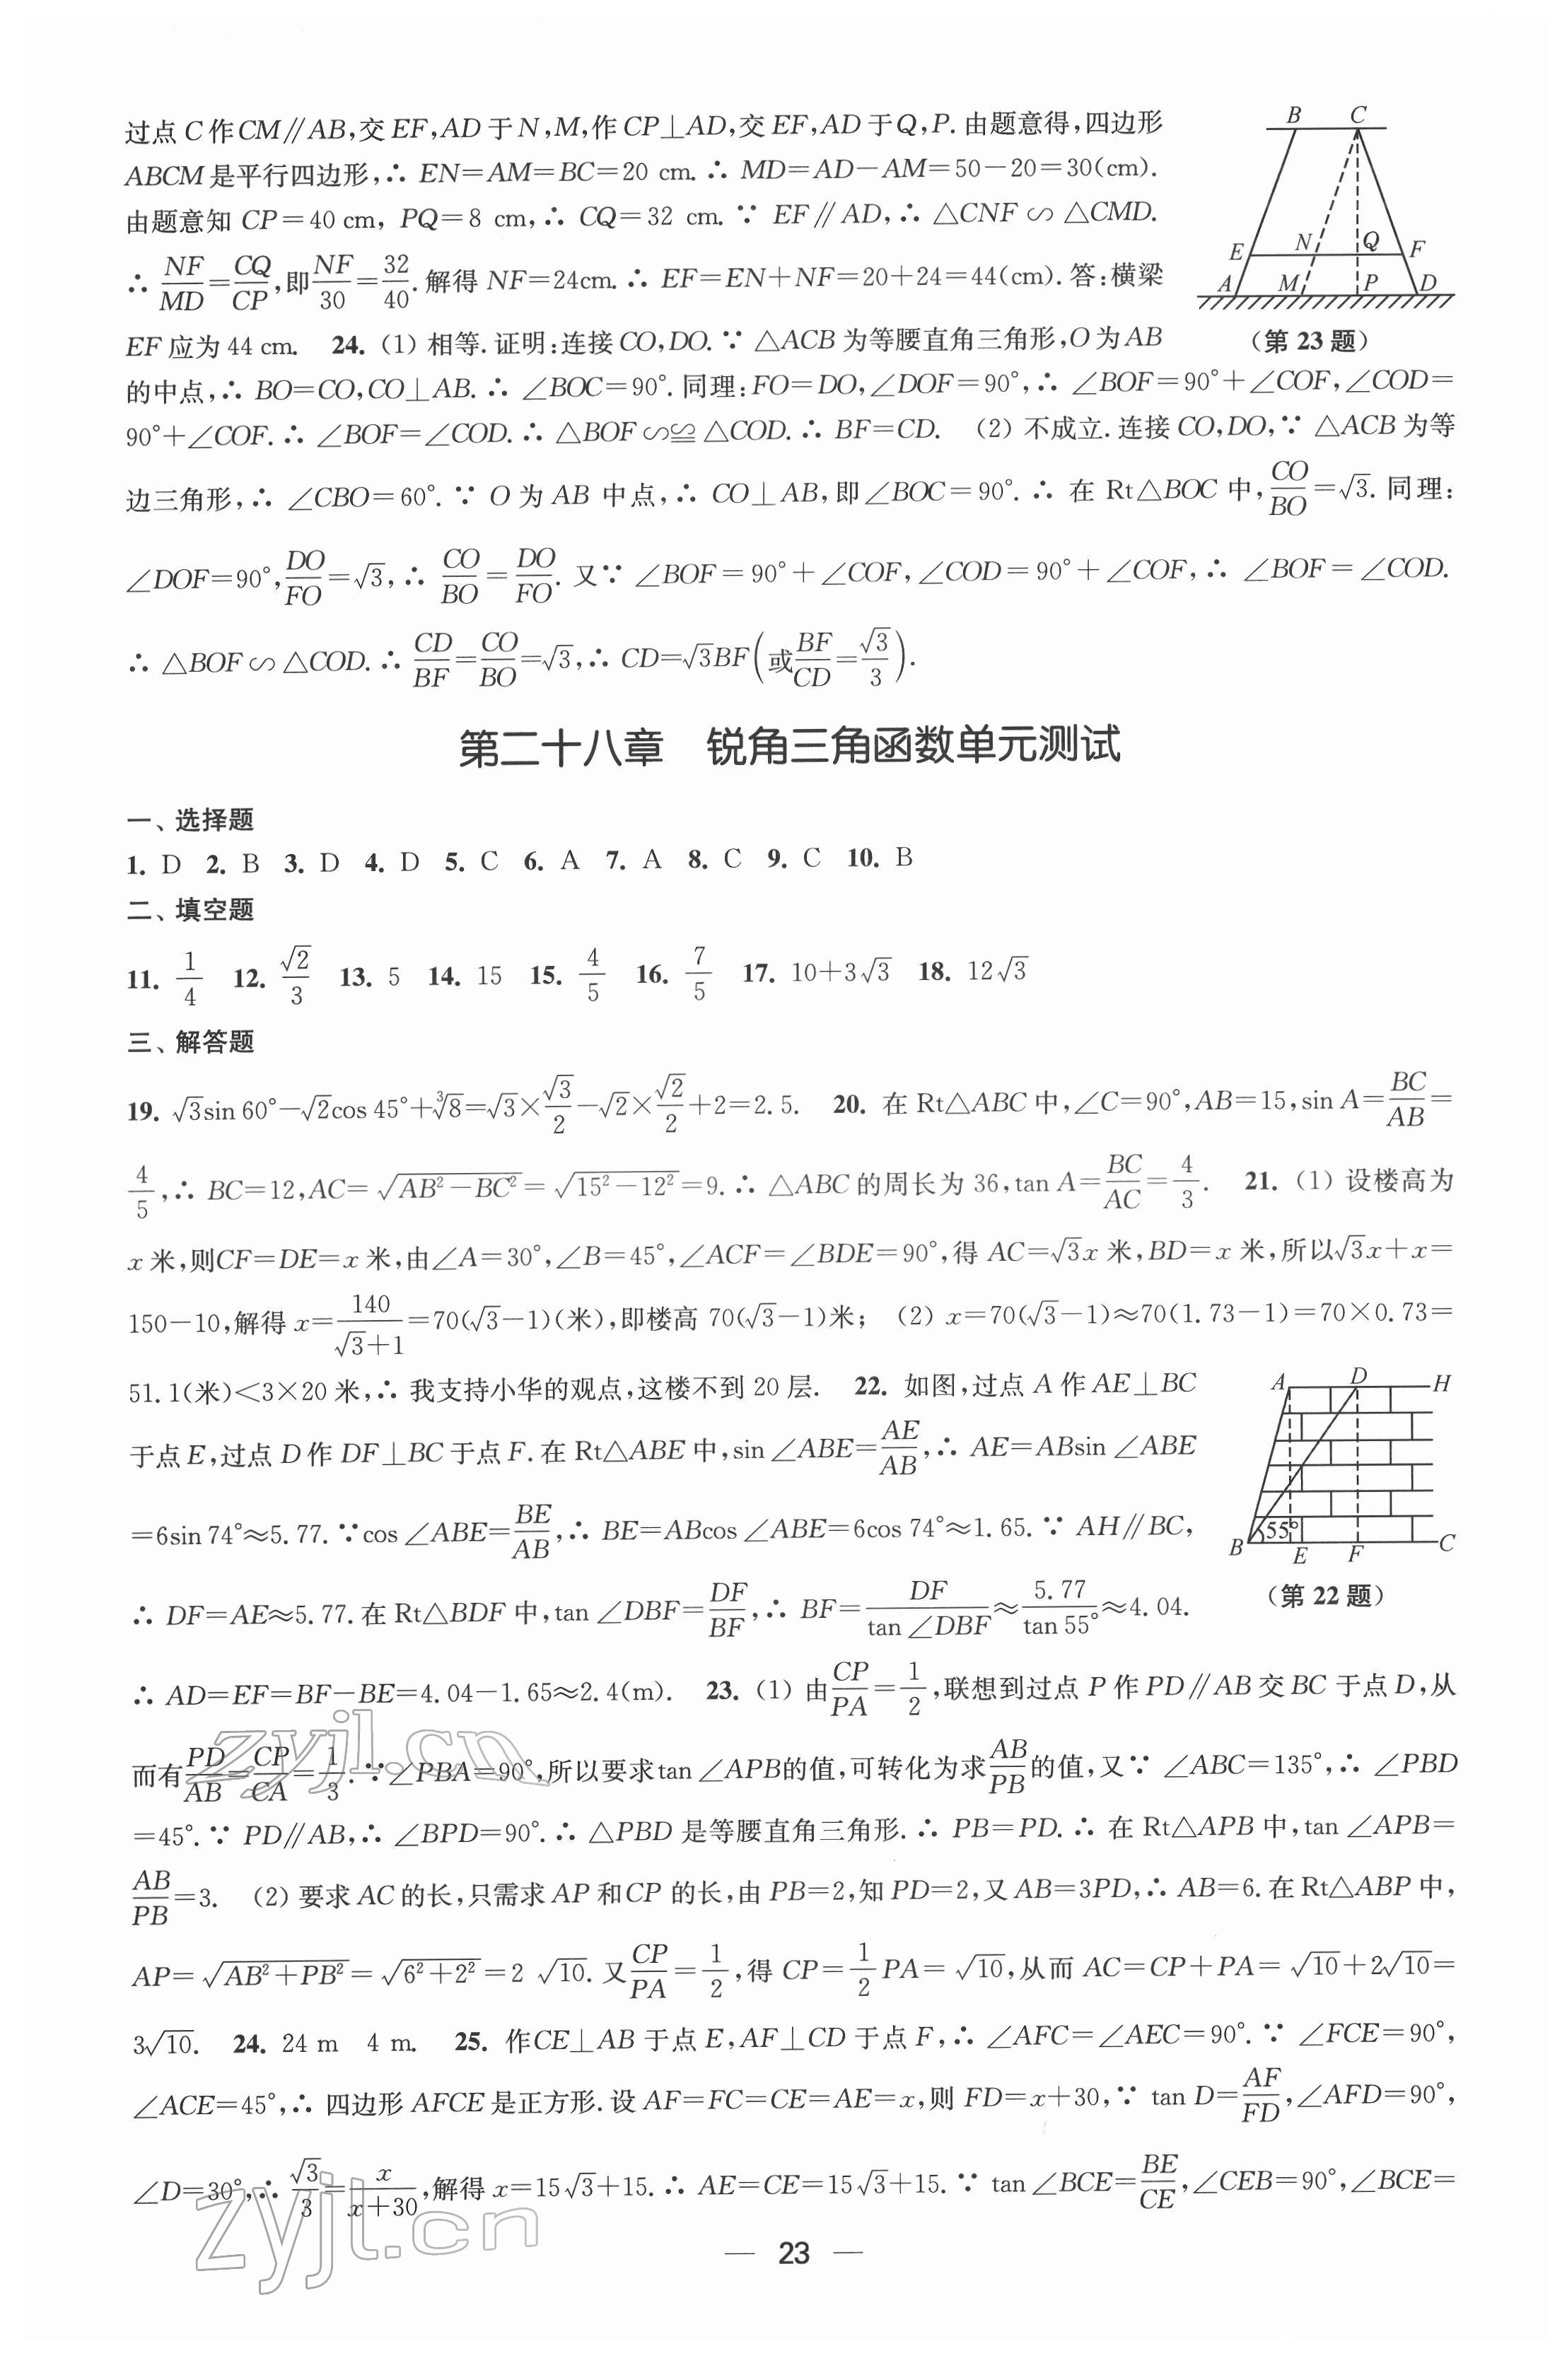 过点C作CM∥AB,交EF,AD于N,M,作CP⊥AD,交EF,AD于Q,P.由题意得,四边形
ABCM是平行四边形,∴ EN=AM=BC=20 cm.∴ MD=AD-AM=50-20=30(cm).
由题意知CP=40 cm, PQ=8 cm,∴ CQ=32 cm.∵ EF∥AD,∴ △CNF∽△CMD.
∴ NF/MD=CQ/CP,即NF/30=32/40.解得NF=24cm.∴ EF=EN+NF=20+24=44(cm).答:横梁
EF应为44 cm. 24.(1) 相等.证明:连接CO,DO.∵ △ACB为等腰直角三角形,O为AB
的中点,∴ BO=CO,CO⊥AB.∴ ∠BOC=90°.同理:FO=DO,∠DOF=90°,∴ ∠BOF=90°+∠COF,∠COD=
90°+∠COF.∴ ∠BOF=∠COD.∴ △BOF∽≌△COD.∴ BF=CD. (2) 不成立.连接CO,DO,∵ △ACB为等
边三角形,∴ ∠CBO=60°.∵ O为AB中点,∴ CO⊥AB,即∠BOC=90°.∴ 在Rt△BOC中,CO/BO=√3.同理:
∠DOF=90°,DO/FO=√3,∴ CO/BO=DO/FO.又∵ ∠BOF=90°+∠COF,∠COD=90°+∠COF,∴ ∠BOF=∠COD.
∴ △BOF∽△COD.∴ CD/BF=CO/BO=√3,∴ CD=√3BF(或BF/CD=√3/3).
B C
E N Q F
A M P D
(第23题)
第二十八章 锐角三角函数单元测试
一、选择题
1. D 2. B 3. D 4. D 5. C 6. A 7. A 8. C 9. C 10. B
二、填空题
11. 1/4 12. √2/3 13. 5 14. 15 15. 4/5 16. 7/5 17. 10+3√3 18. 12√3
三、解答题
19. √3sin 60°-√2cos 45°+∛8=√3×√3/2-√2×√2/2+2=2.5. 20. 在Rt△ABC中,∠C=90°,AB=15,sin A=BC/AB=
4/5,∴ BC=12,AC=√(AB²-BC²)=√(15²-12²)=9.∴ △ABC的周长为36,tan A=BC/AC=4/3. 21.(1) 设楼高为
x米,则CF=DE=x米,由∠A=30°,∠B=45°,∠ACF=∠BDE=90°,得AC=√3x米,BD=x米,所以√3x+x=
150-10,解得x=140/(√3+1)=70(√3-1)(米),即楼高70(√3-1)米; (2) x=70(√3-1)≈70(1.73-1)=70×0.73=
51.1(米)<3×20米,∴ 我支持小华的观点,这楼不到20层. 22. 如图,过点A作AE⊥BC
于点E,过点D作DF⊥BC于点F.在Rt△ABE中,sin∠ABE=AE/AB,∴ AE=ABsin∠ABE
=6sin 74°≈5.77.∵cos∠ABE=BE/AB,∴ BE=ABcos∠ABE=6cos 74°≈1.65.∵ AH∥BC,
∴ DF=AE≈5.77.在Rt△BDF中,tan∠DBF=DF/BF,∴ BF=DF/tan∠DBF≈5.77/tan 55°≈4.04.
A D H
B 55° E F C
(第22题)
∴ AD=EF=BF-BE=4.04-1.65≈2.4(m). 23.(1) 由CP/PA=1/2,联想到过点P作PD∥AB交BC于点D,从
而有PD/AB=CP/CA=1/3.∵∠PBA=90°,所以要求tan∠APB的值,可转化为求AB/PB的值,又∵ ∠ABC=135°,∴ ∠PBD
=45°.∵ PD∥AB,∴ ∠BPD=90°.∴ △PBD是等腰直角三角形.∴ PB=PD.∴ 在Rt△APB中,tan∠APB=
AB/PB=3. (2) 要求AC的长,只需求AP和CP的长,由PB=2,知PD=2,又AB=3PD,∴ AB=6.在Rt△ABP中,
AP=√(AB²+PB²)=√(6²+2²)=2 √10.又CP/PA=1/2,得CP=1/2PA=√10,从而AC=CP+PA=√10+2√10=
3√10. 24. 24 m 4 m. 25. 作CE⊥AB于点E,AF⊥CD于点F,∴ ∠AFC=∠AEC=90°.∵ ∠FCE=90°,
∠ACE=45°,∴ 四边形AFCE是正方形.设AF=FC=CE=AE=x,则FD=x+30,∵ tan D=AF/FD,∠AFD=90°,
∠D=30°,∴ √3/3=x/(x+30),解得x=15√3+15.∴ AE=CE=15√3+15.∵ tan∠BCE=BE/CE,∠CEB=90°,∠BCE=
— 23 —
zyjl.cn
zyjl.cn